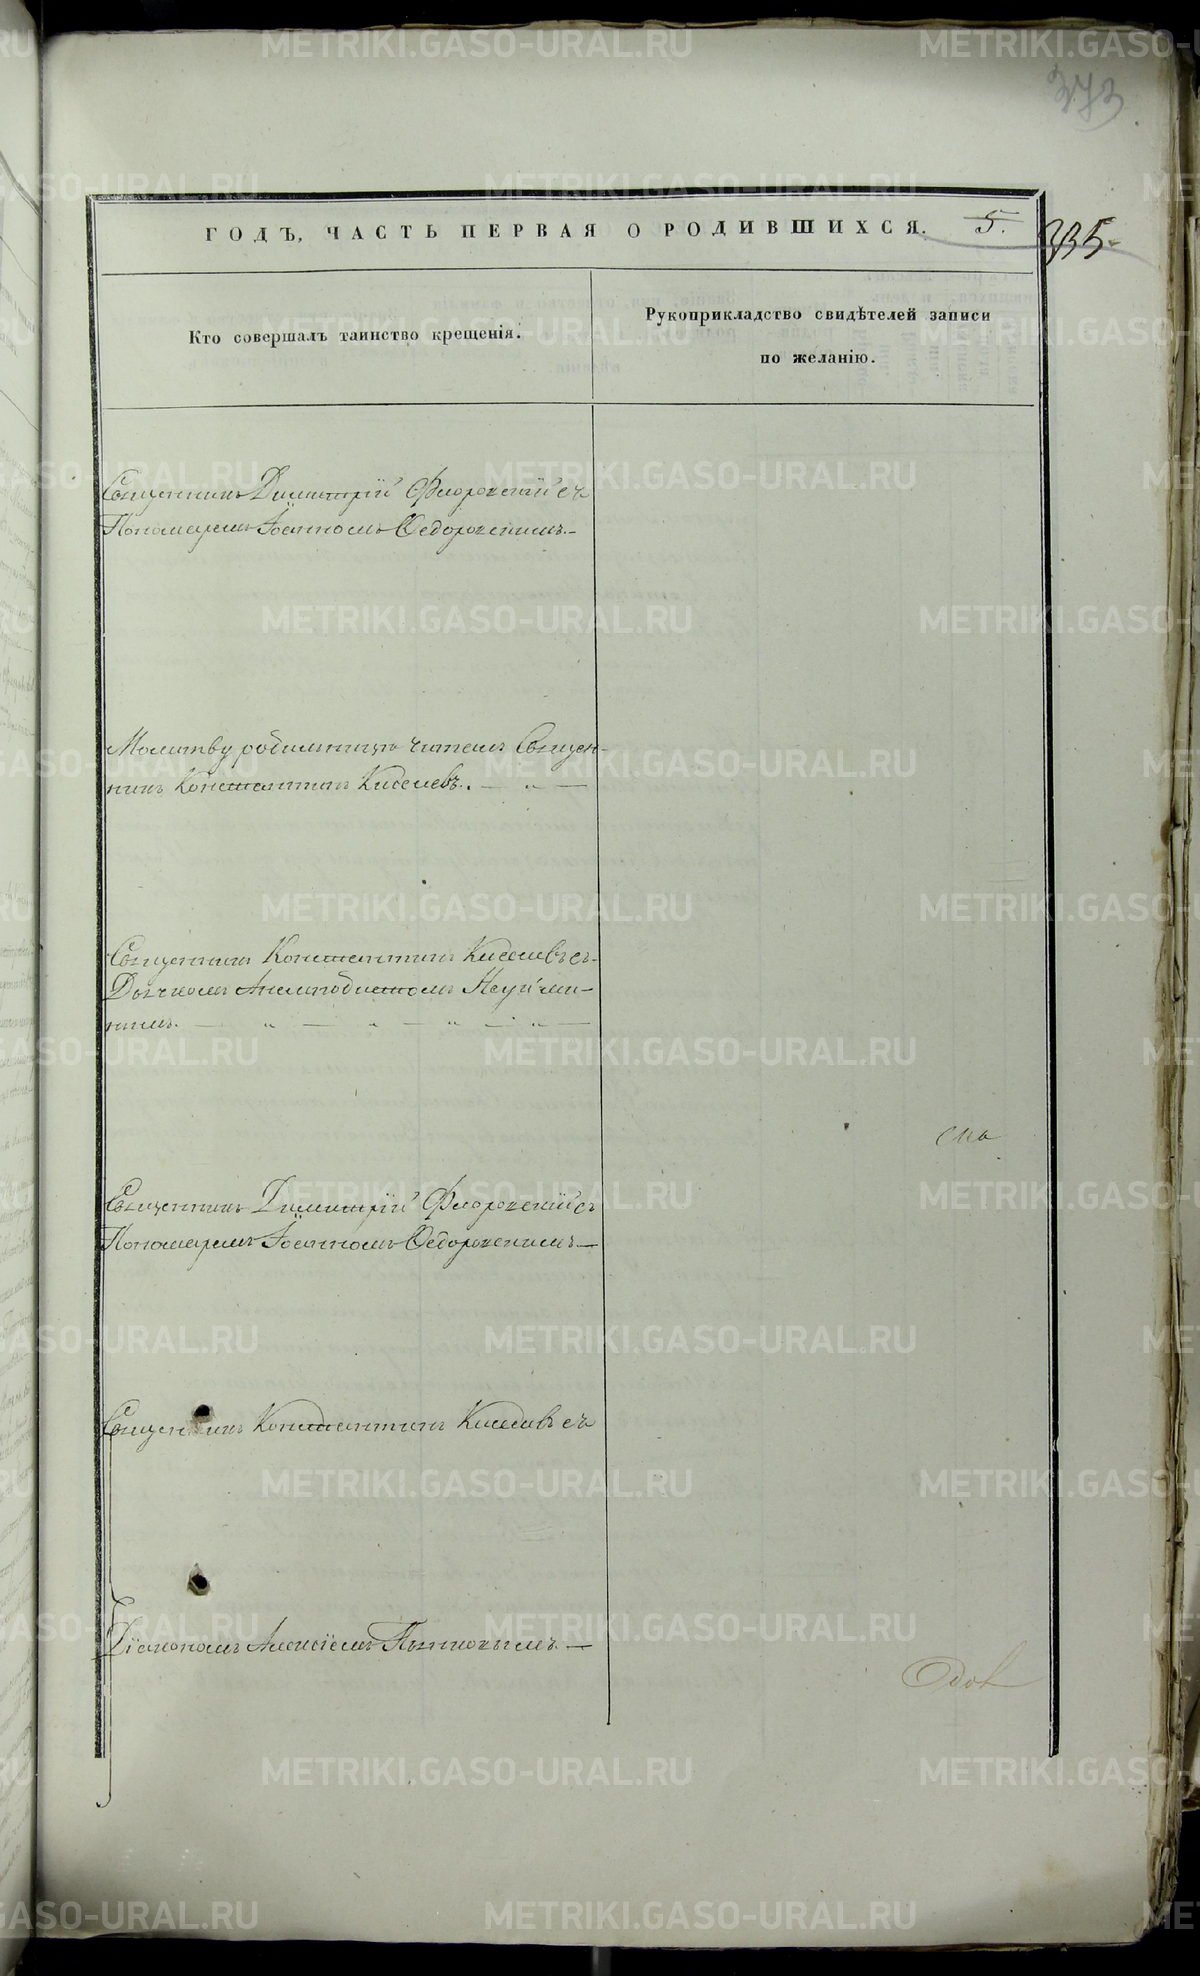 373
ГОДЪ, ЧАСТЬ ПЕРВАЯ О РОДИВШИХСЯ.
5.
335
Кто совершалъ таинство крещенія.
Рукоприкладство свидѣтелей записи
по желанію.
Священникъ Димитрій Флоровскій съ
Пономаремъ Іоанномъ Ѳедоровскимъ.
Молитву родильницѣ читалъ Священ-
никъ Константинъ Киселевъ.
Священникъ Константинъ Киселевъ съ
Дьячкомъ Анемподистомъ Неуйми-
нымъ.
Священникъ Димитрій Флоровскій съ
Пономаремъ Іоанномъ Ѳедоровскимъ
Священникъ Константинъ Киселевъ съ
Діакономъ Алексіемъ
METRIKI.GASO-URAL.RU